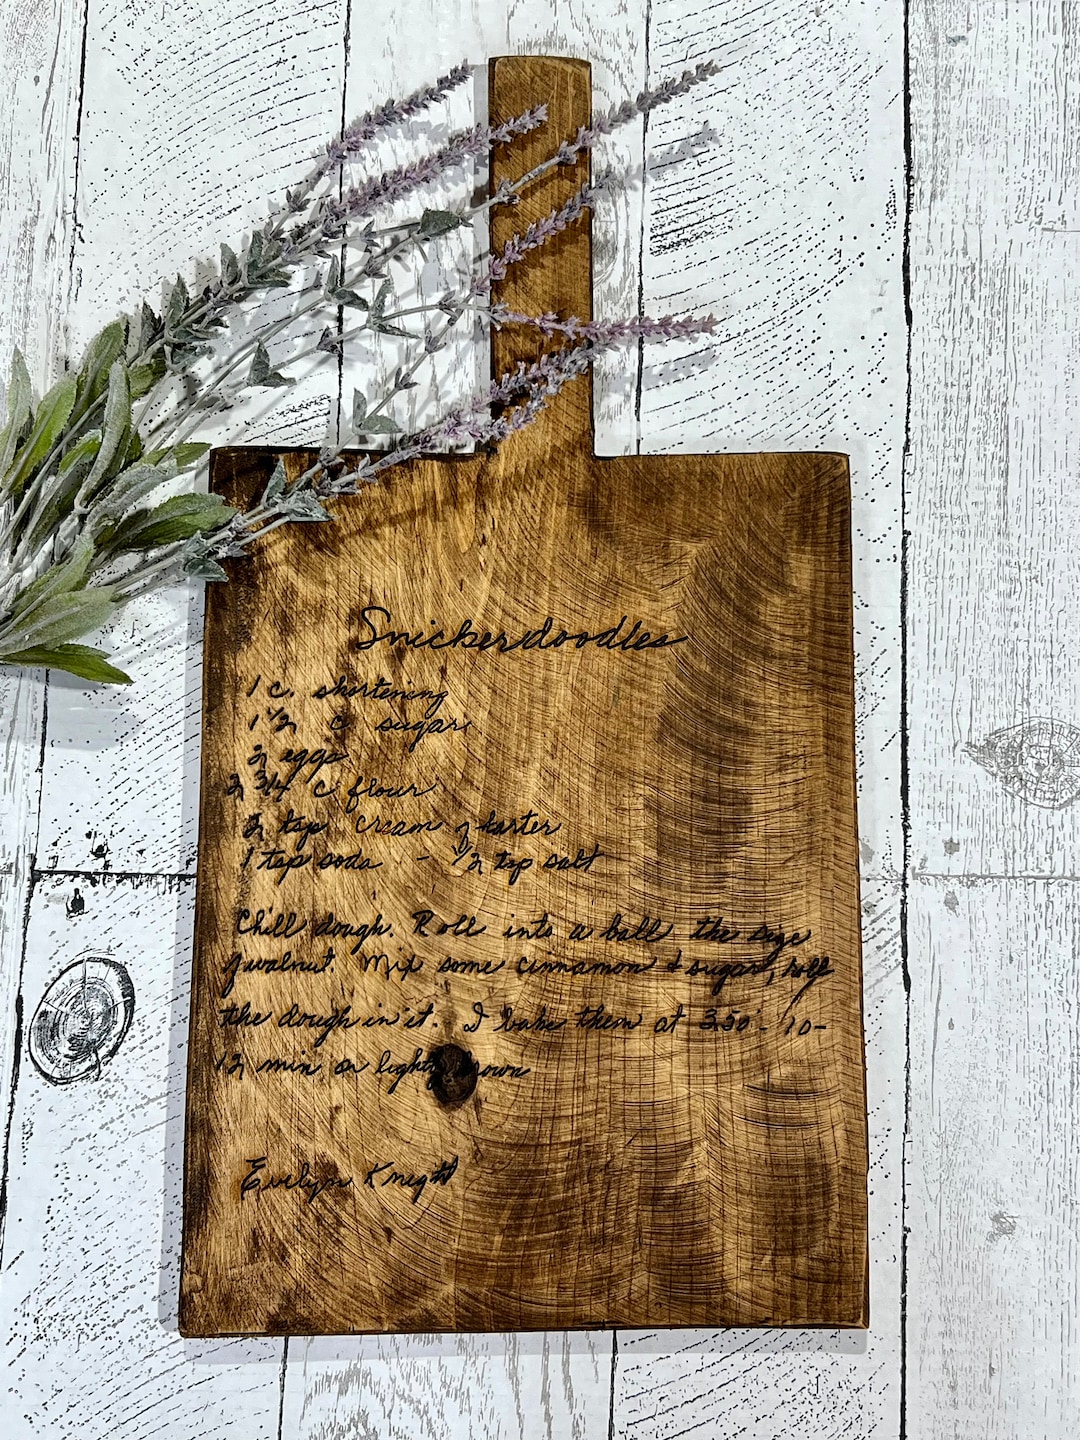 Snickerdoodles
1 c. shortening
1 1/2 c sugar
2 eggs
2 3/4 c flour
2 tsp cream of tarter
1 tsp soda - 1/2 tsp salt
Chill dough. Roll into a ball the size
of walnut. Mix some cinnamon & sugar, roll
the dough in it. I bake them at 350° - 10-
12 min or lightly brown
Evelyn Knight